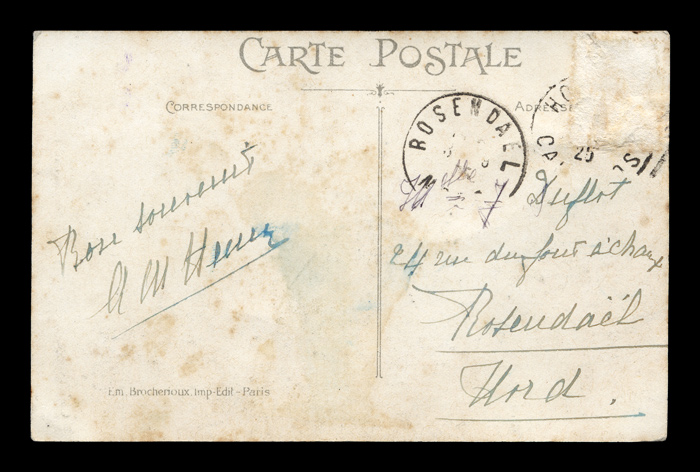 CARTE POSTALE
CORRESPONDANCE
ADRESSE
ROSENDAËL
25
Bon souvenir
A M Henri
Duflot
24 rue du four à chaux
Rosendaël
Nord.
Em. Brocherioux, Imp-Edit - Paris